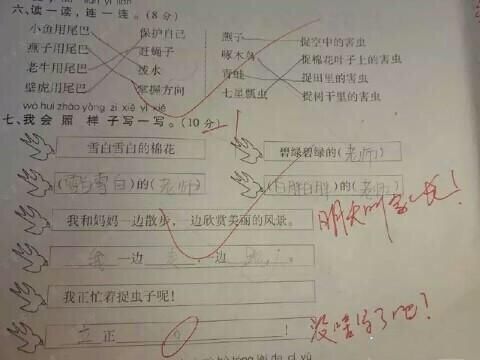 六、读一读，连一连。(8分)
小鱼用尾巴 保护自己 燕子 捉空中的害虫
燕子用尾巴 赶蝇子 啄木鸟 捉棉花叶子上的害虫
老牛用尾巴 拨水 青蛙 捉田里的害虫
壁虎用尾巴 掌握方向 七星瓢虫 捉树干里的害虫
wǒ huì zhào yàng zi xiě yì xiě
七、我会照样子写一写。(10分) -1
雪白雪白的棉花 碧绿碧绿的(老师)
(雪白雪白)的(老师) (白胖白胖)的(老师)
我和妈妈一边散步，一边欣赏美丽的风景。
明天叫家长！
一边 边
我正忙着捉虫子呢！
正 ！
没啥写了吧？